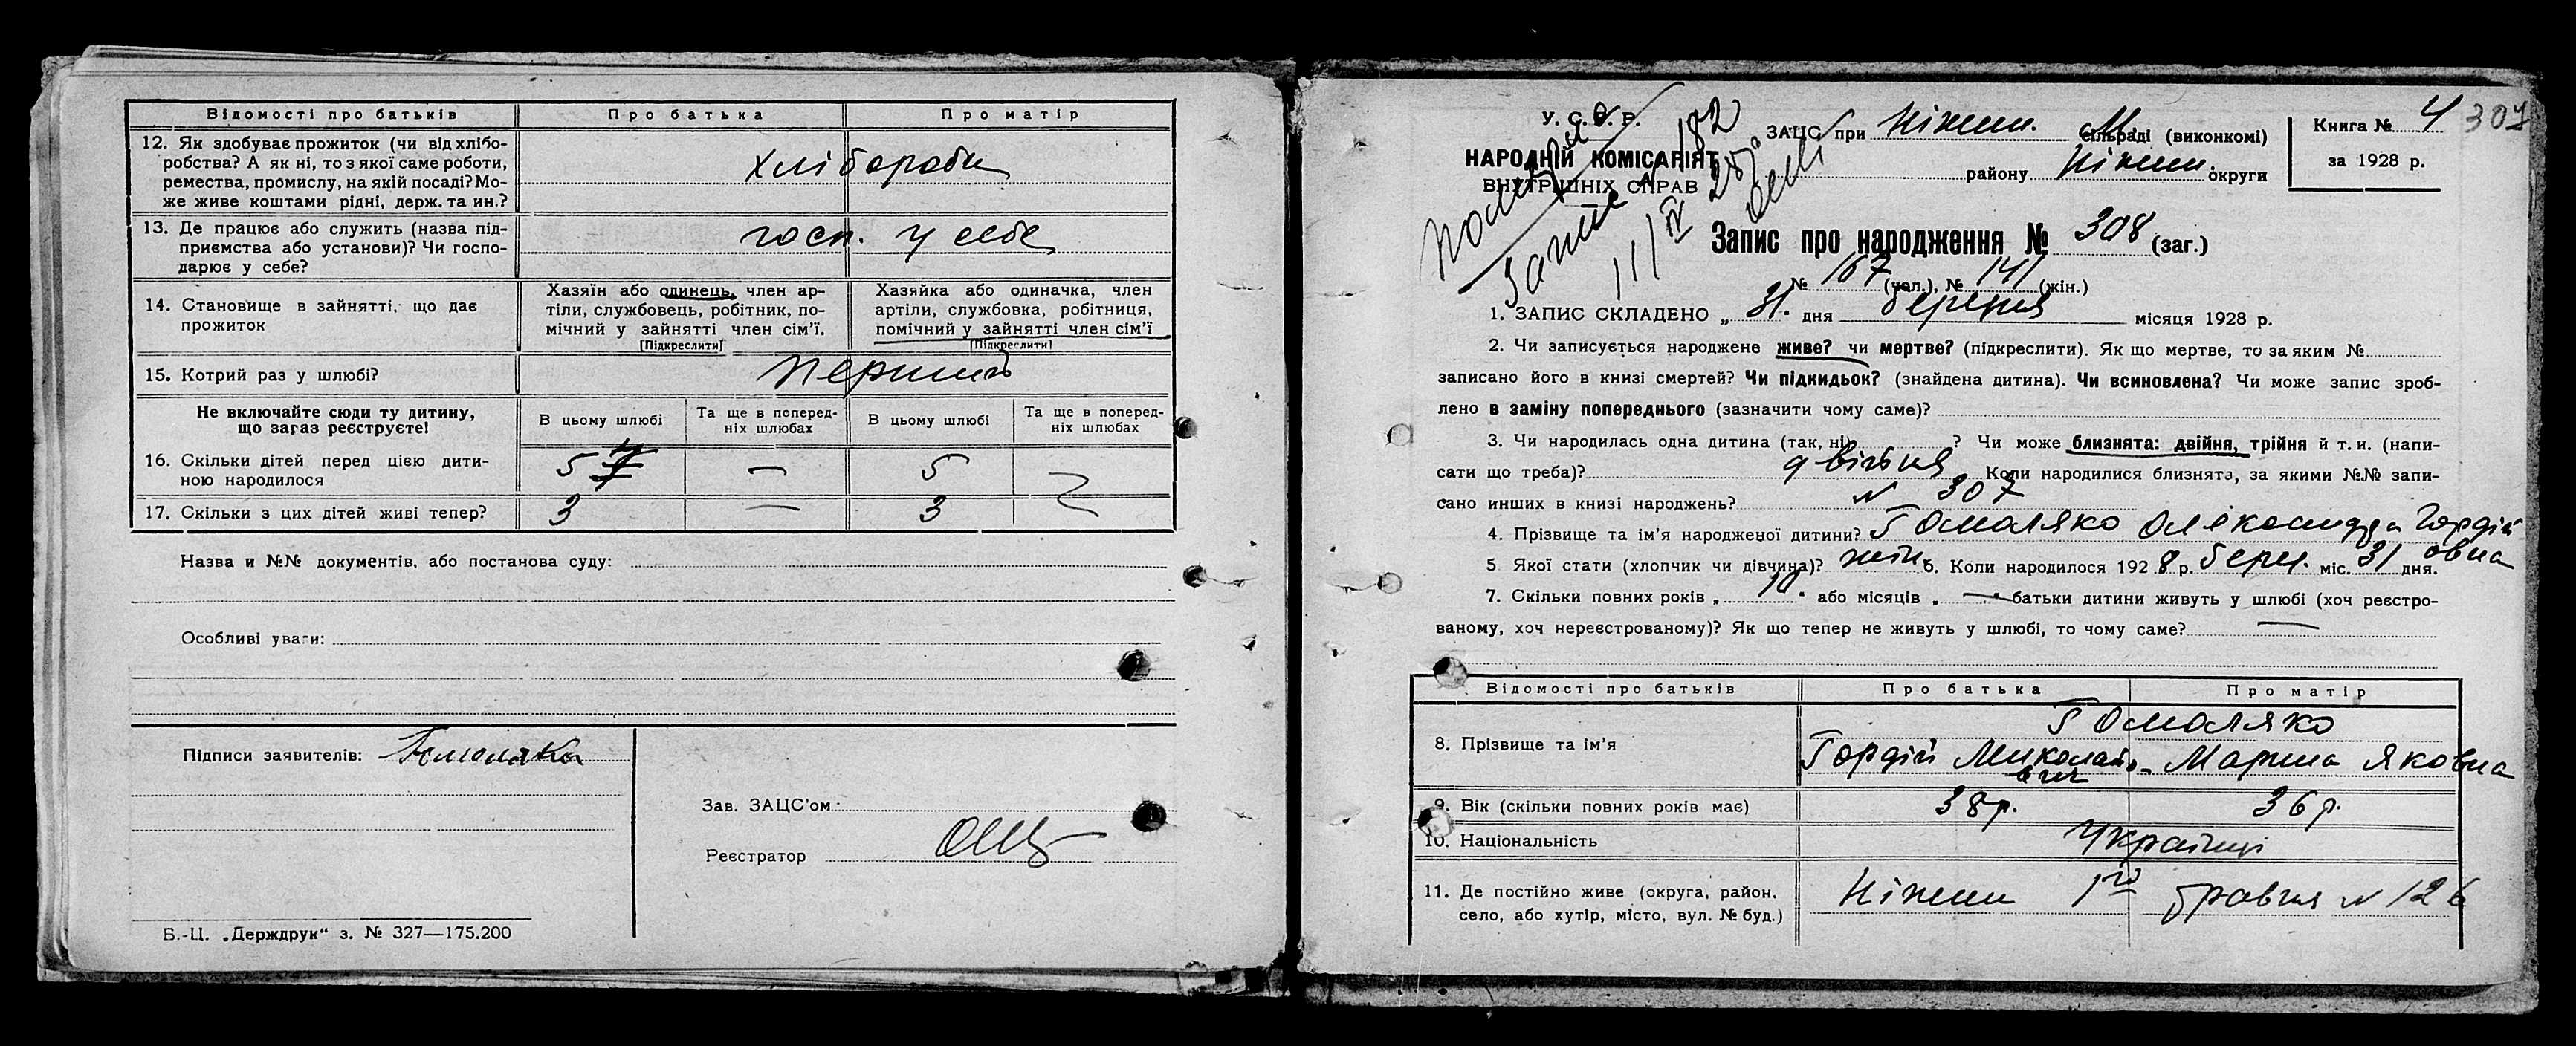 Відомості про батьків Про батька Про матір
12. Як здобуває прожиток (чи від хлібо-
робства? А як ні, то з якої саме роботи,
ремества, промислу, на якій посаді? Мо-
же живе коштами рідні, держ. та ин.?
хлібороби
13. Де працює або служить (назва під-
приємства або установи)? Чи госпо-
дарює у себе?
госп. у себе
14. Становище в зайнятті, що дає
прожиток
Хазяїн або одинець, член ар-
тілі, службовець, робітник, по-
мічний у зайнятті член сім'ї.
[Підкреслити]
Хазяйка або одиначка, член
артілі, службовка, робітниця,
помічний у зайнятті член сім'ї
[Підкреслити]
15. Котрий раз у шлюбі?
Не включайте сюди ту дитину,
що зараз реєструєте!
В цьому шлюбі
Та ще в поперед-
ніх шлюбах
В цьому шлюбі
Та ще в поперед-
ніх шлюбах
16. Скільки дітей перед цією дити-
ною народилося
5 — 5
17. Скільки з цих дітей живі тепер? 3 — 3
Назва и №№ документів, або постанова суду:
Особливі уваги:
Підписи заявителів:
Зав. ЗАЦС'ом
Реєстратор
Б.-Ц. „Держдрук“ з. № 327—175.200
У. С. Р. Р.
НАРОДНІЙ КОМІСАРІЯТ
ВНУТРІШНІХ СПРАВ
182
ЗАЦС при Ніжин. М. сільраді (виконкомі)
району Ніжин. округи
Книга № 4
за 1928 р.
307
Запис про народження № 308 (заг.)
№ 167 (чол.), № 141 (жін.)
1. ЗАПИС СКЛАДЕНО „ 31. дня березня місяця 1928 р.
2. Чи записується народжене живе? чи мертве? (підкреслити). Як що мертве, то за яким №
записано його в книзі смертей? Чи підкидьок? (знайдена дитина). Чи всиновлена? Чи може запис зроб-
лено в заміну попереднього (зазначити чому саме)?
3. Чи народилась одна дитина (так, ні) ? Чи може близнята: двійня, трійня й т. и. (напи-
сати що треба)? двійня Коли народилися близнята, за якими №№ запи-
сано инших в книзі народжень? № 307
4. Прізвище та ім'я народженої дитини? Гомоляко Олександра Гордій
овна
5. Якої стати (хлопчик чи дівчина)? жін. 6. Коли народилося 1928 р. берез. міс. 31 дня.
7. Скільки повних років „ 10 “ або місяців „ — “ батьки дитини живуть у шлюбі (хоч реєстро-
ваному, хоч нереєстрованому)? Як що тепер не живуть у шлюбі, то чому саме? —
Відомості про батьків Про батька Про матір
8. Прізвище та ім'я
Гомоляко
Гордій Миколайо- Марина Яковна
вич
9. Вік (скільки повних років має) 38 р. 36 р.
10. Національність Українці
11. Де постійно живе (округа, район,
село, або хутір, місто, вул. № буд.)
Ніжин 1го травня № 126